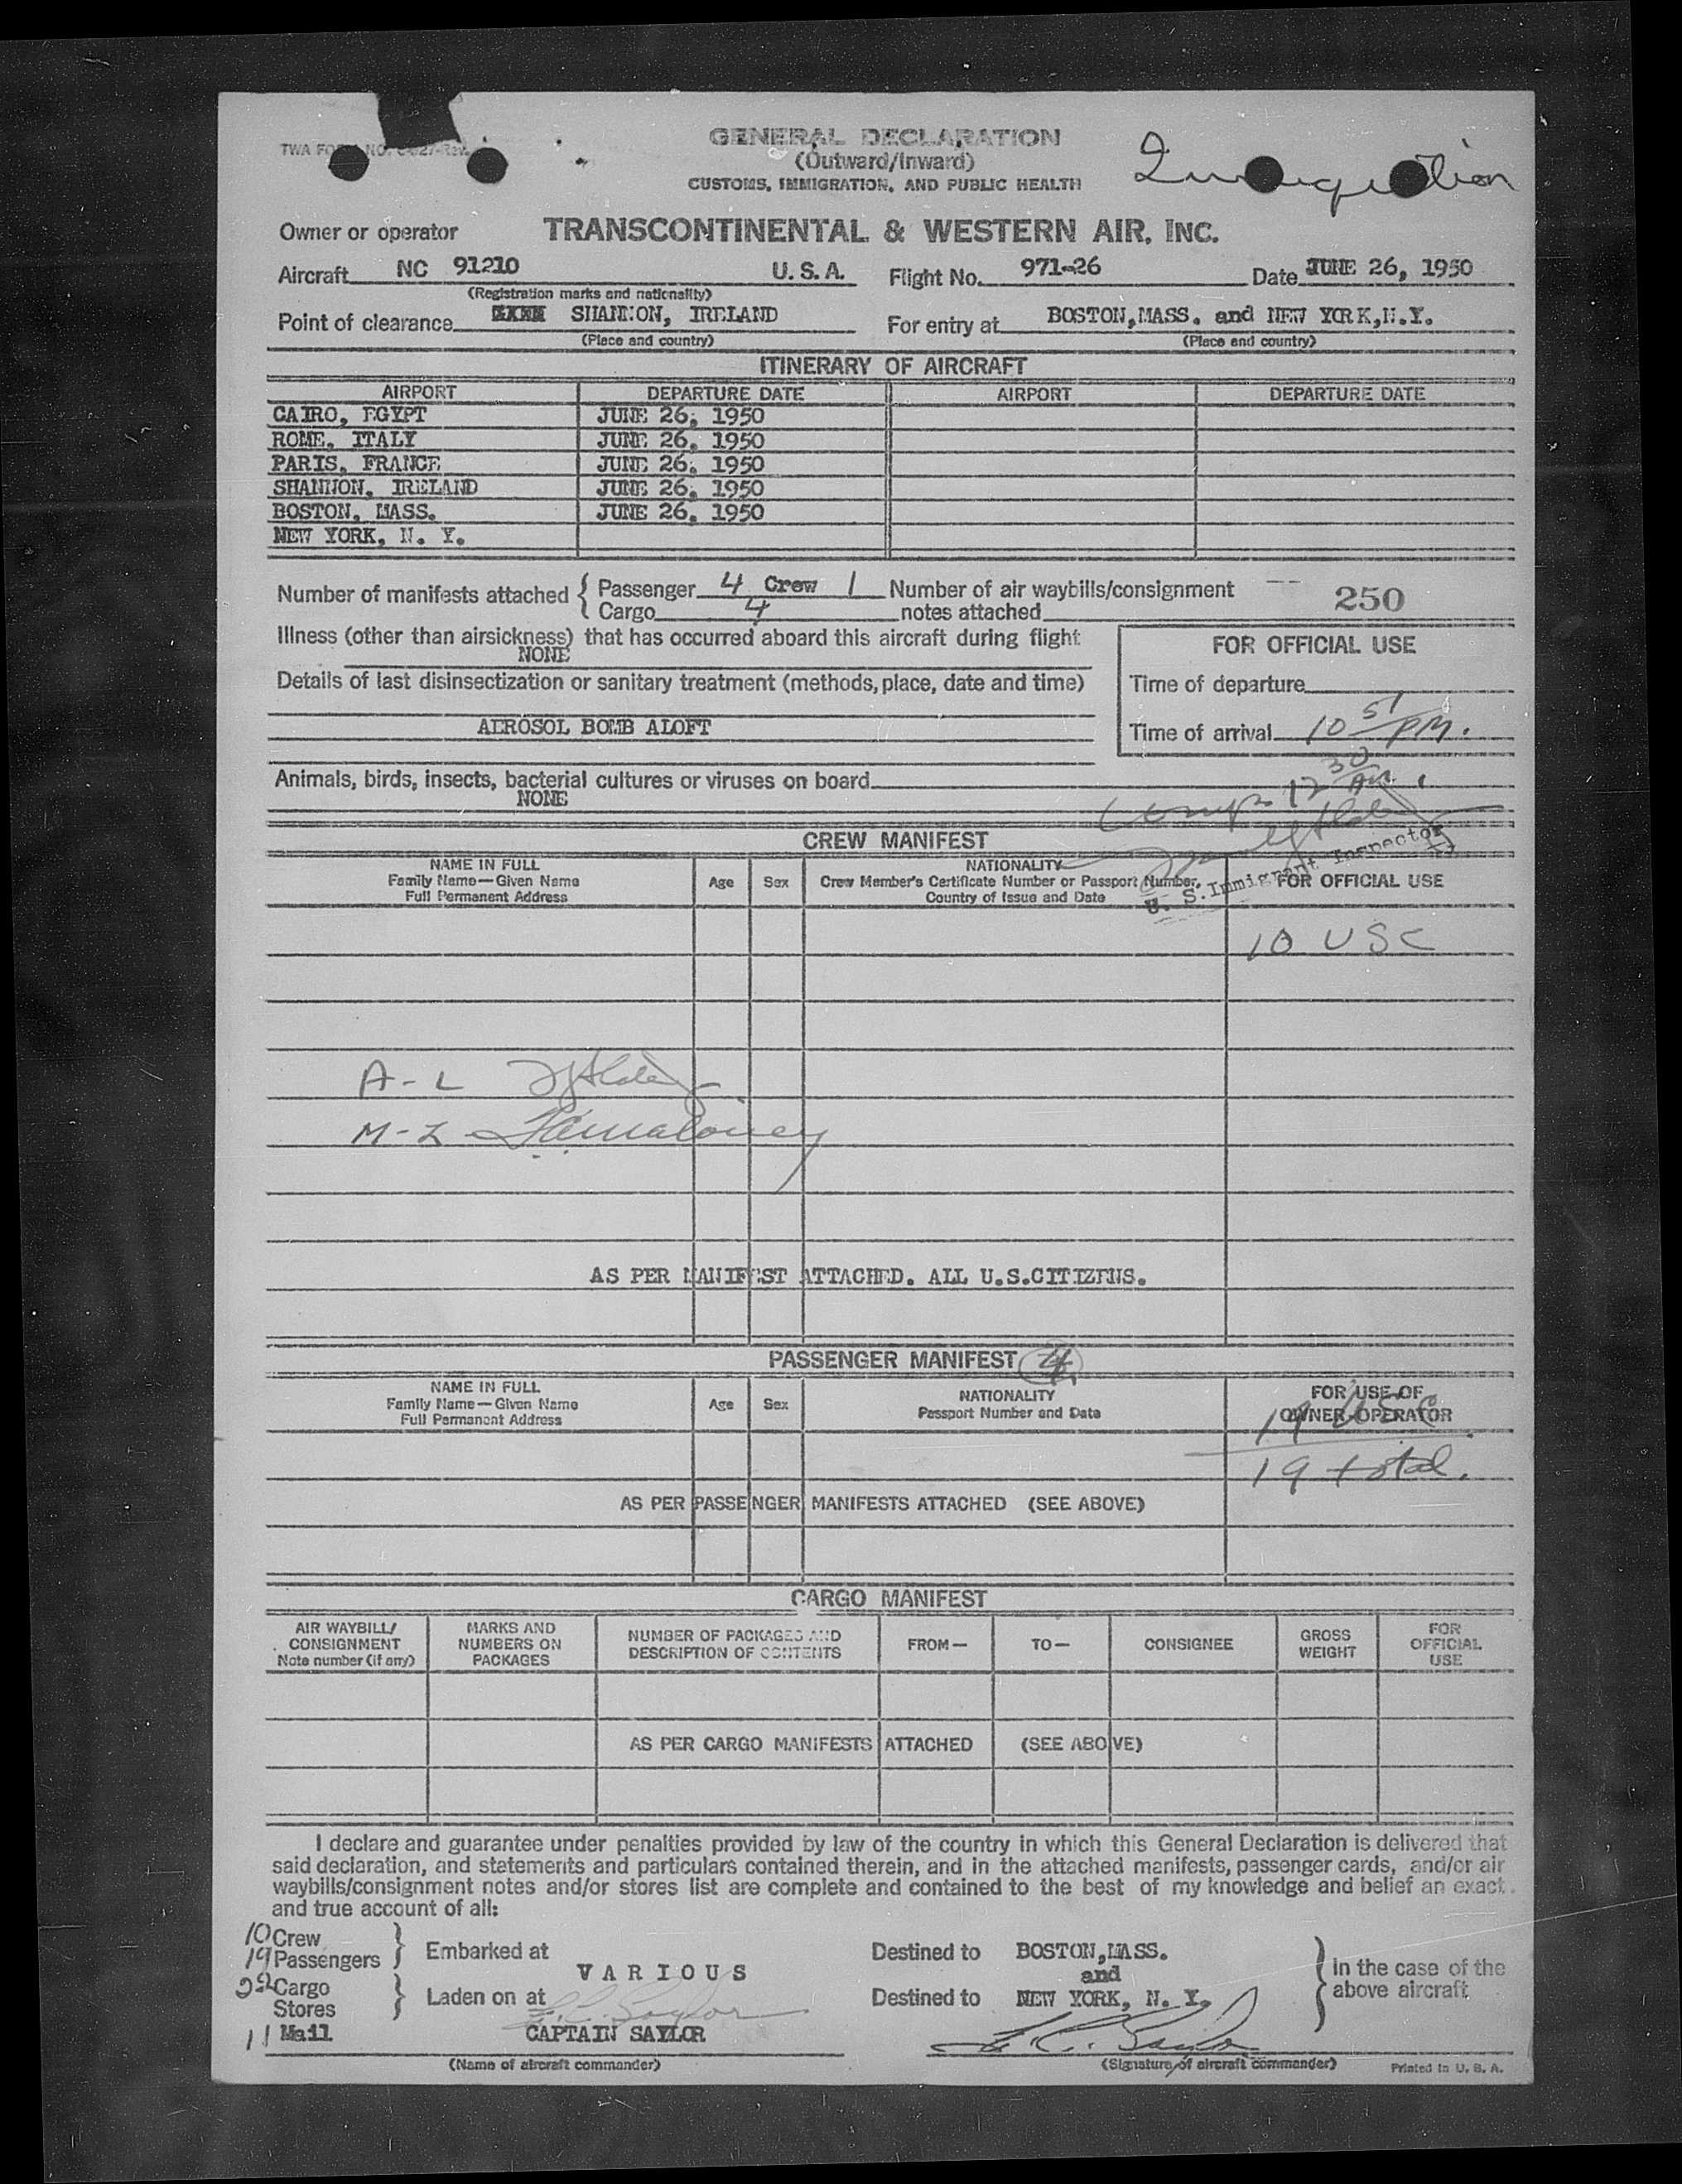 TWA FORM NO.
GENERAL DECLARATION
(Outward/Inward)
CUSTOMS, IMMIGRATION, AND PUBLIC HEALTH
Owner or operator TRANSCONTINENTAL & WESTERN AIR, INC.
Aircraft NC 91210 U.S.A. Flight No. 971-26 Date JUNE 26, 1950
(Registration marks and nationality)
Point of clearance SHANNON, IRELAND For entry at BOSTON,MASS. and NEW YORK,N.Y.
(Place and country) (Place and country)
ITINERARY OF AIRCRAFT
AIRPORT DEPARTURE DATE AIRPORT DEPARTURE DATE
CAIRO, EGYPT JUNE 26, 1950
ROME, ITALY JUNE 26, 1950
PARIS, FRANCE JUNE 26, 1950
SHANNON, IRELAND JUNE 26, 1950
BOSTON, MASS. JUNE 26, 1950
NEW YORK, N. Y.
Number of manifests attached { Passenger 4 Crew 1 Number of air waybills/consignment -- 250
Cargo 4 notes attached
Illness (other than airsickness) that has occurred aboard this aircraft during flight
NONE
FOR OFFICIAL USE
Details of last disinsectization or sanitary treatment (methods, place, date and time)
Time of departure
AEROSOL BOMB ALOFT
Time of arrival 10 51 PM.
Animals, birds, insects, bacterial cultures or viruses on board
NONE
Comp. 12 30 AM.
U. S. Immigrant Inspector
CREW MANIFEST
NAME IN FULL
Family Name—Given Name
Full Permanent Address
Age Sex
NATIONALITY
Crew Member's Certificate Number or Passport Number,
Country of Issue and Date
FOR OFFICIAL USE
10 USC
A-L
M-Z
AS PER MANIFEST ATTACHED. ALL U.S.CITIZENS.
PASSENGER MANIFEST 4
NAME IN FULL
Family Name—Given Name
Full Permanent Address
Age Sex
NATIONALITY
Passport Number and Date
FOR USE OF
OWNER-OPERATOR
19 USC
19 total.
AS PER PASSENGER MANIFESTS ATTACHED (SEE ABOVE)
CARGO MANIFEST
AIR WAYBILL/
CONSIGNMENT
Note number (if any)
MARKS AND
NUMBERS ON
PACKAGES
NUMBER OF PACKAGES AND
DESCRIPTION OF CONTENTS
FROM— TO— CONSIGNEE
GROSS
WEIGHT
FOR
OFFICIAL
USE
AS PER CARGO MANIFESTS ATTACHED (SEE ABOVE)
I declare and guarantee under penalties provided by law of the country in which this General Declaration is delivered that
said declaration, and statements and particulars contained therein, and in the attached manifests, passenger cards, and/or air
waybills/consignment notes and/or stores list are complete and contained to the best of my knowledge and belief an exact
and true account of all:
10 Crew
19 Passengers } Embarked at Destined to BOSTON,MASS.
VARIOUS and } in the case of the
Cargo
Stores } Laden on at Destined to NEW YORK, N. Y. above aircraft
11 Mail CAPTAIN SAYLOR
(Name of aircraft commander) (Signature of aircraft commander) Printed in U. S. A.